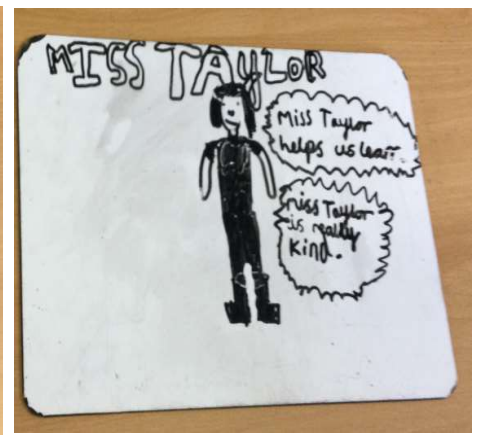 MISS TAYLOR
Miss Taylor
helps us learn.
miss Taylor
is really
kind.